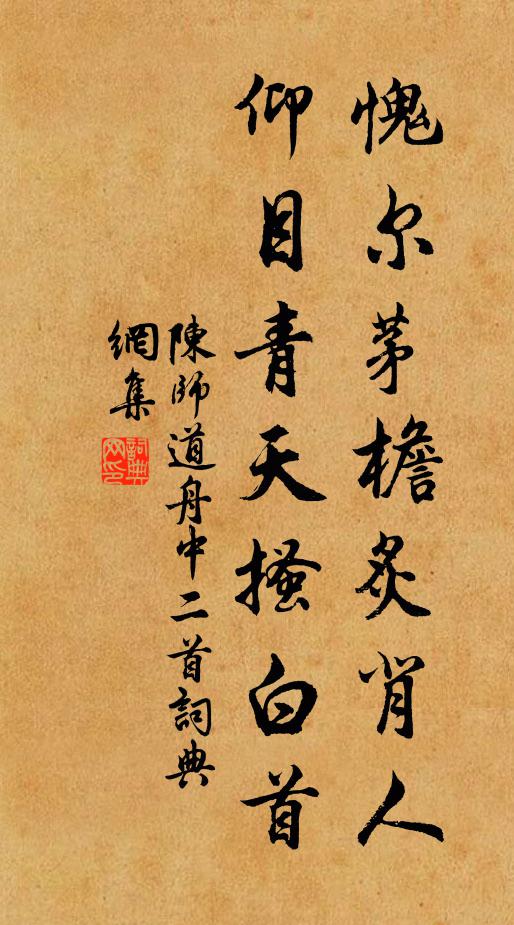 愧尔茅檐炙背人
仰目青天搔白首
陳師道舟中二首詞典
網集
詞典
网印